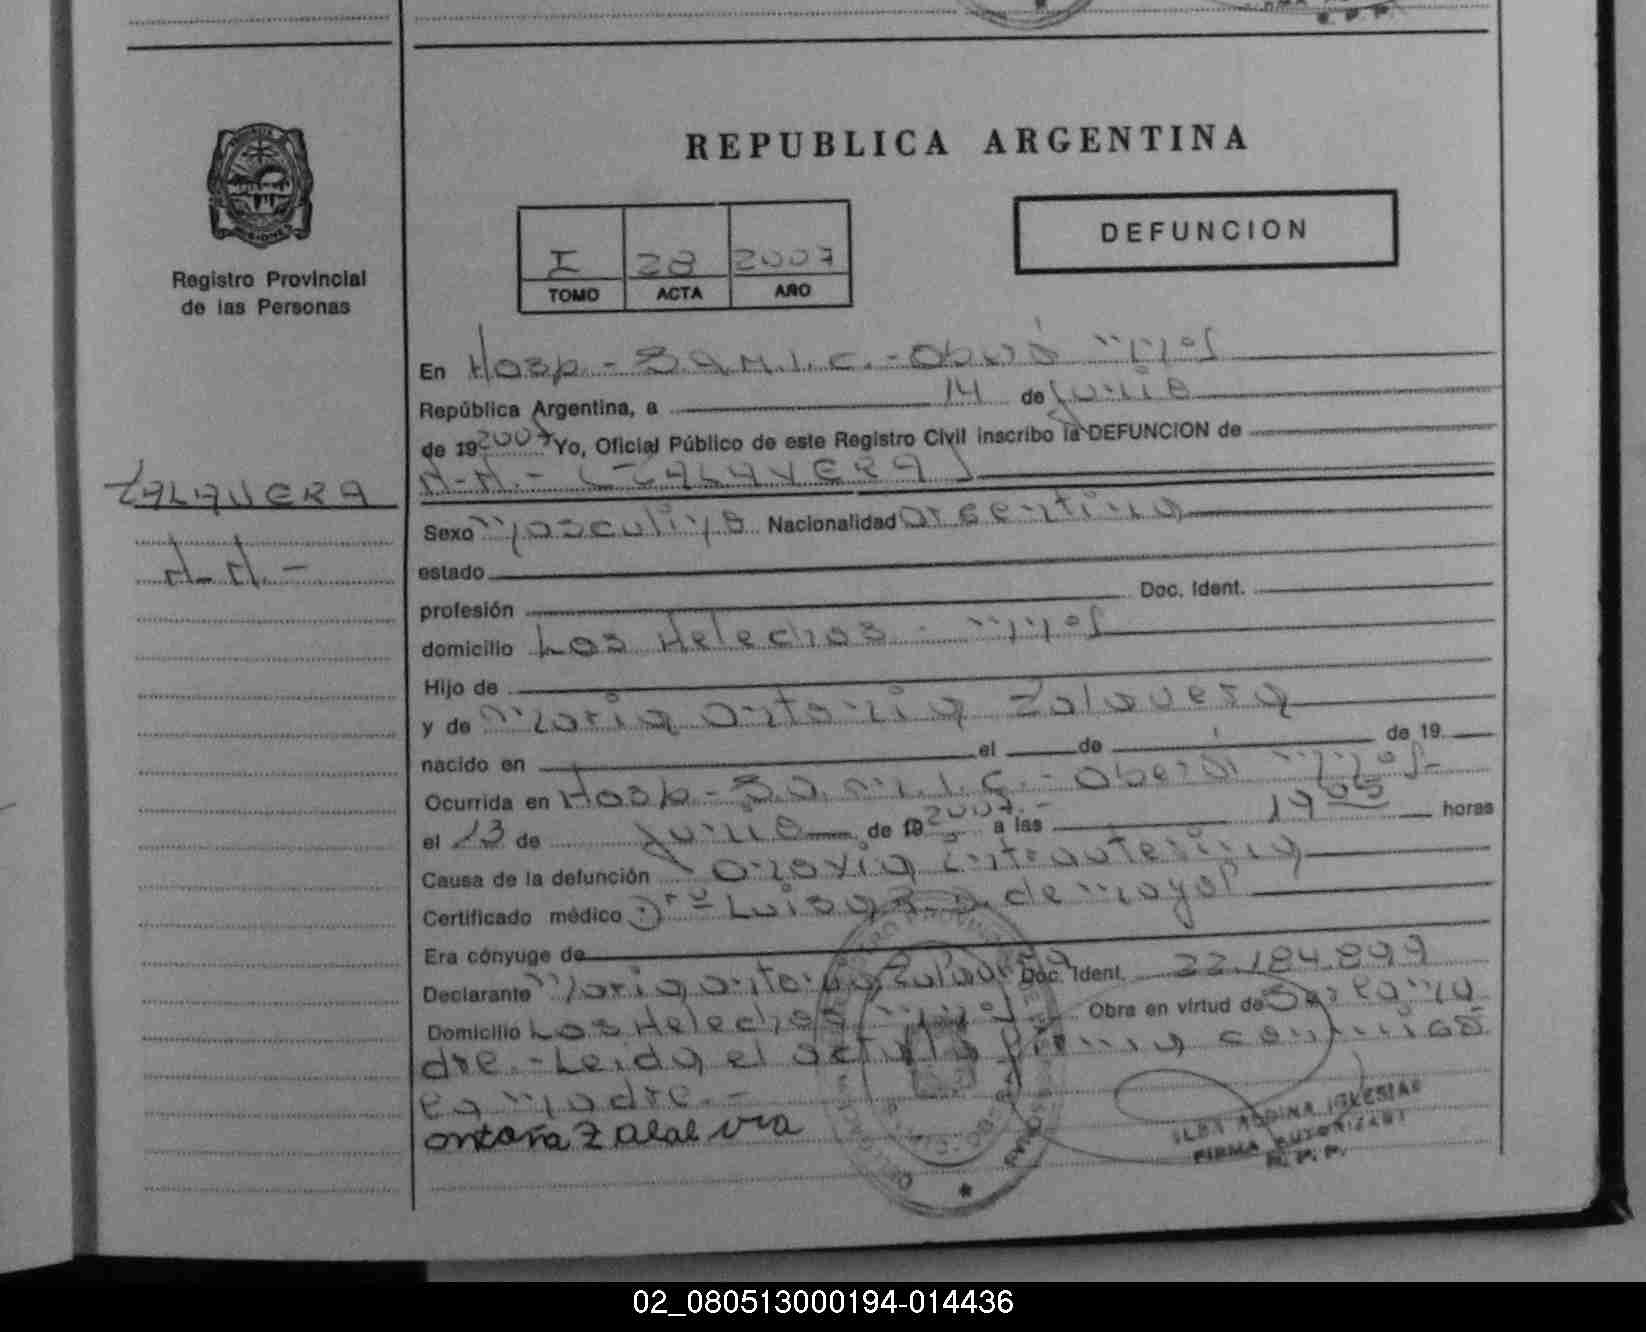 REPUBLICA ARGENTINA
DEFUNCION
Registro Provincial
de las Personas
I 28 2007
TOMO ACTA AÑO
En Hosp - S.A.M.I.C. - Oberá Mnes
República Argentina, a 14 de Junio
de 19 2007 Yo, Oficial Público de este Registro Civil inscribo la DEFUNCION de
N.N. - (ZALAVERA)
ZALAVERA
N.N. -
Sexo Masculino Nacionalidad Argentina
estado
profesión Doc. Ident.
domicilio Los Helechos - Mnes
Hijo de
y de Maria Antonia Zalavera
nacido en el de de 19
Ocurrida en Hosp - S.A.M.I.C. - Oberá Mnes -
el 13 de Junio de 19 2007.- a las 19 05 horas
Causa de la defunción Anoxia Intrauterina
Certificado médico Drª Luisa de Mayol
Era cónyuge de
Declarante Maria Antonia Zalavera Doc. Ident. 22.184.899
Domicilio Los Helechos Mnes Obra en virtud de Ser la ma
dre. - Leida el acta la firma conmigo
la madre. -
ILDA IGLESIAS
FIRMA AUTORIZADA
R. P. P.
02_080513000194-014436